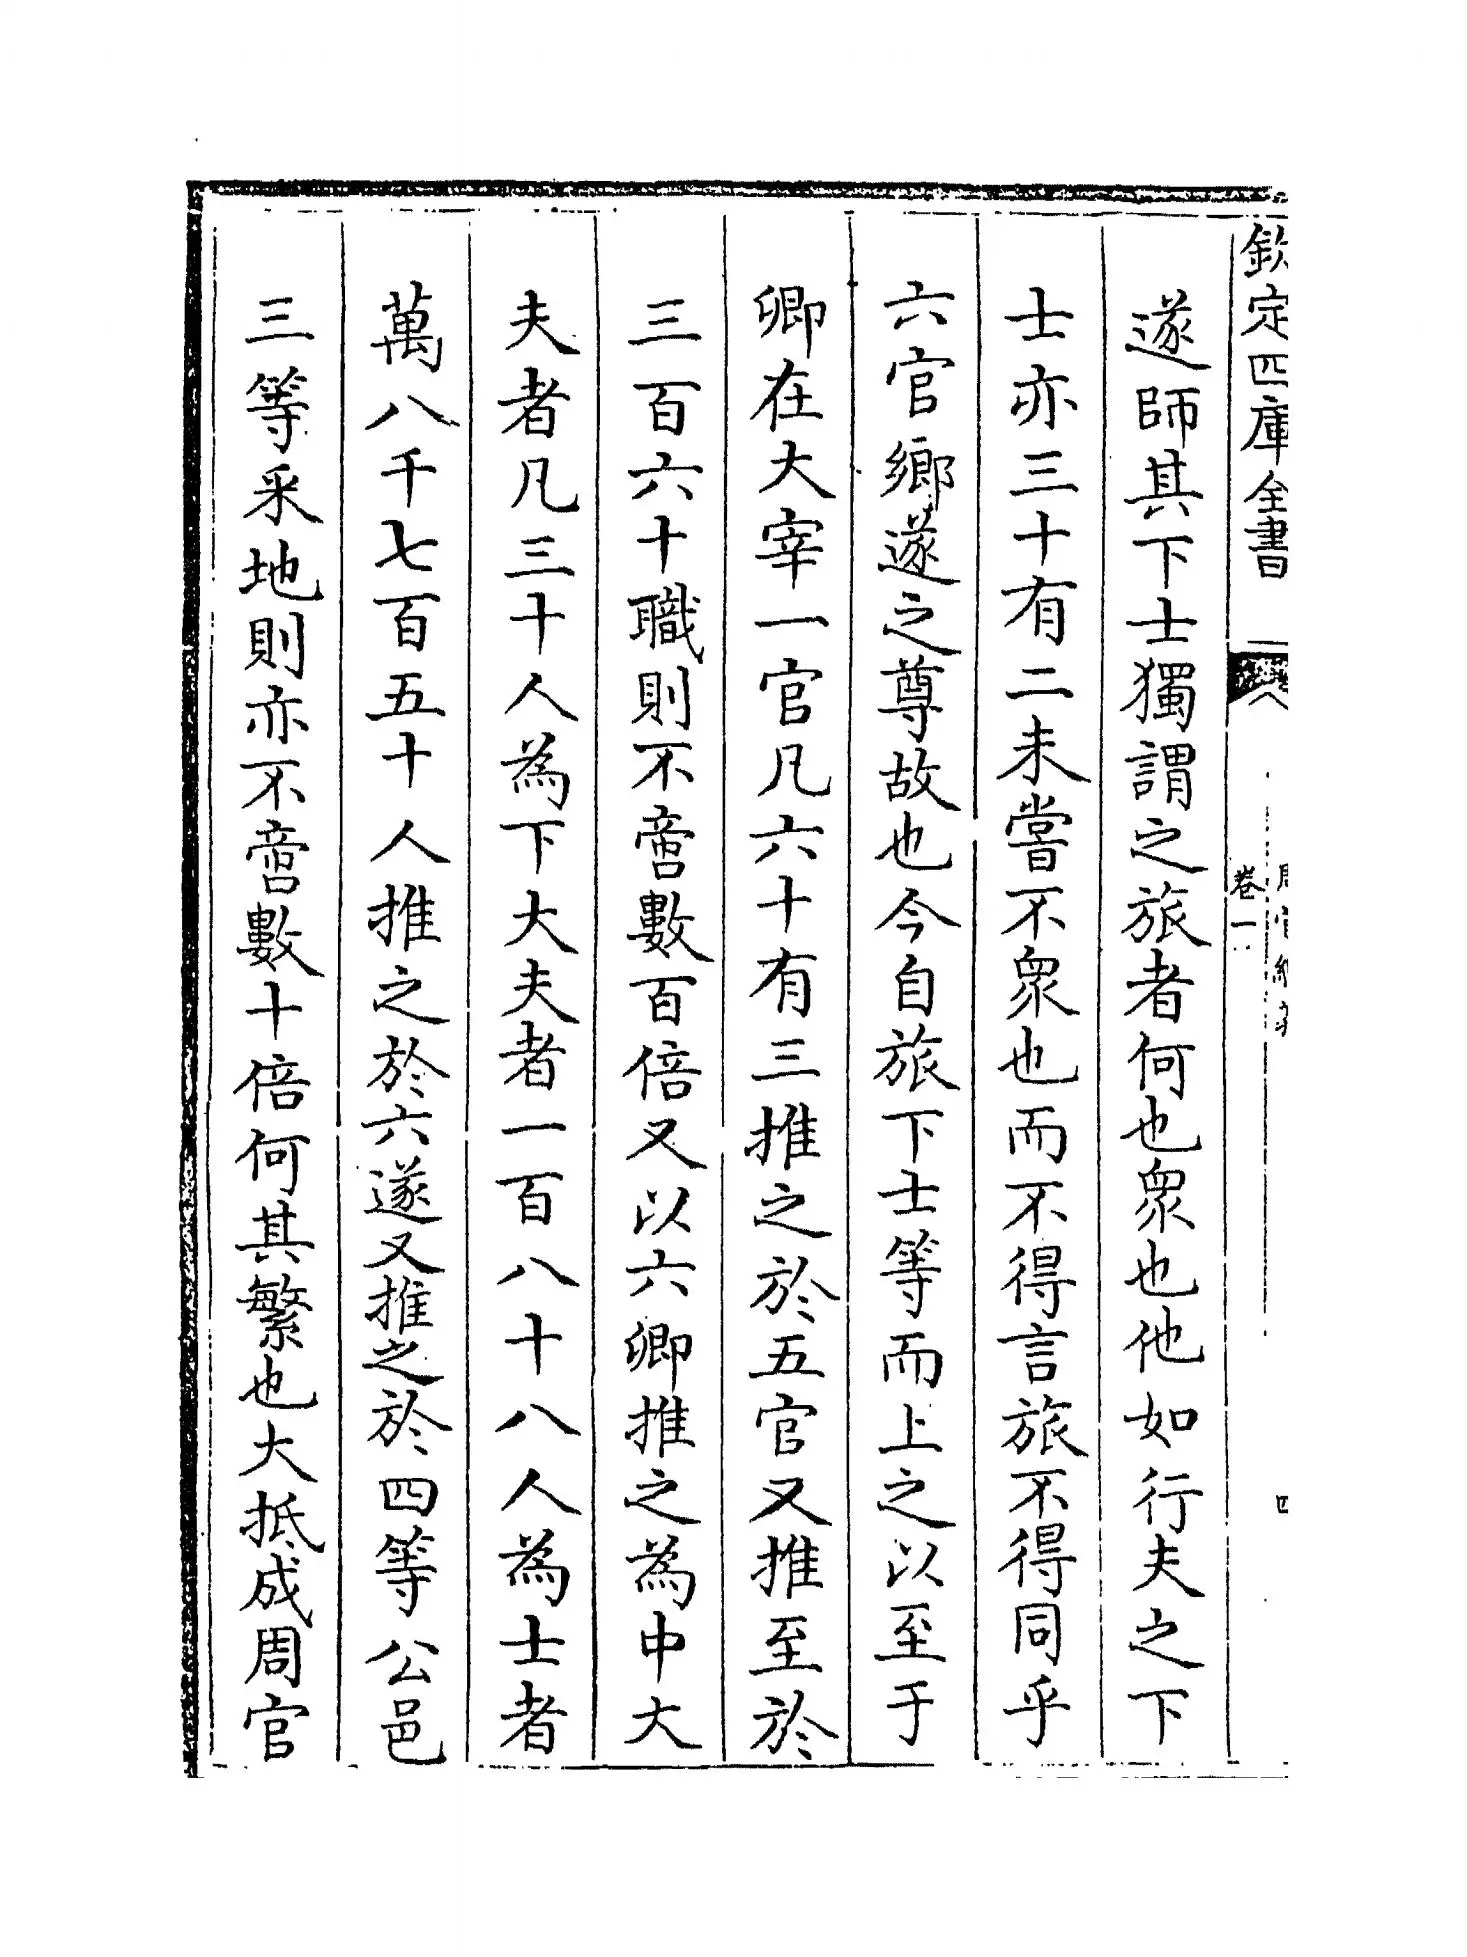 欽定四庫全書
卷一
四
遂師其下士獨謂之旅者何也衆也他如行夫之下
士亦三十有二未嘗不衆也而不得言旅不得同乎
六官鄉遂之尊故也今自旅下士等而上之以至于
卿在大宰一官凡六十有三推之於五官又推至於
三百六十職則不啻數百倍又以六卿推之為中大
夫者凡三十人為下大夫者一百八十八人為士者
萬八千七百五十人推之於六遂又推之於四等公邑
三等采地則亦不啻數十倍何其繁也大抵成周官